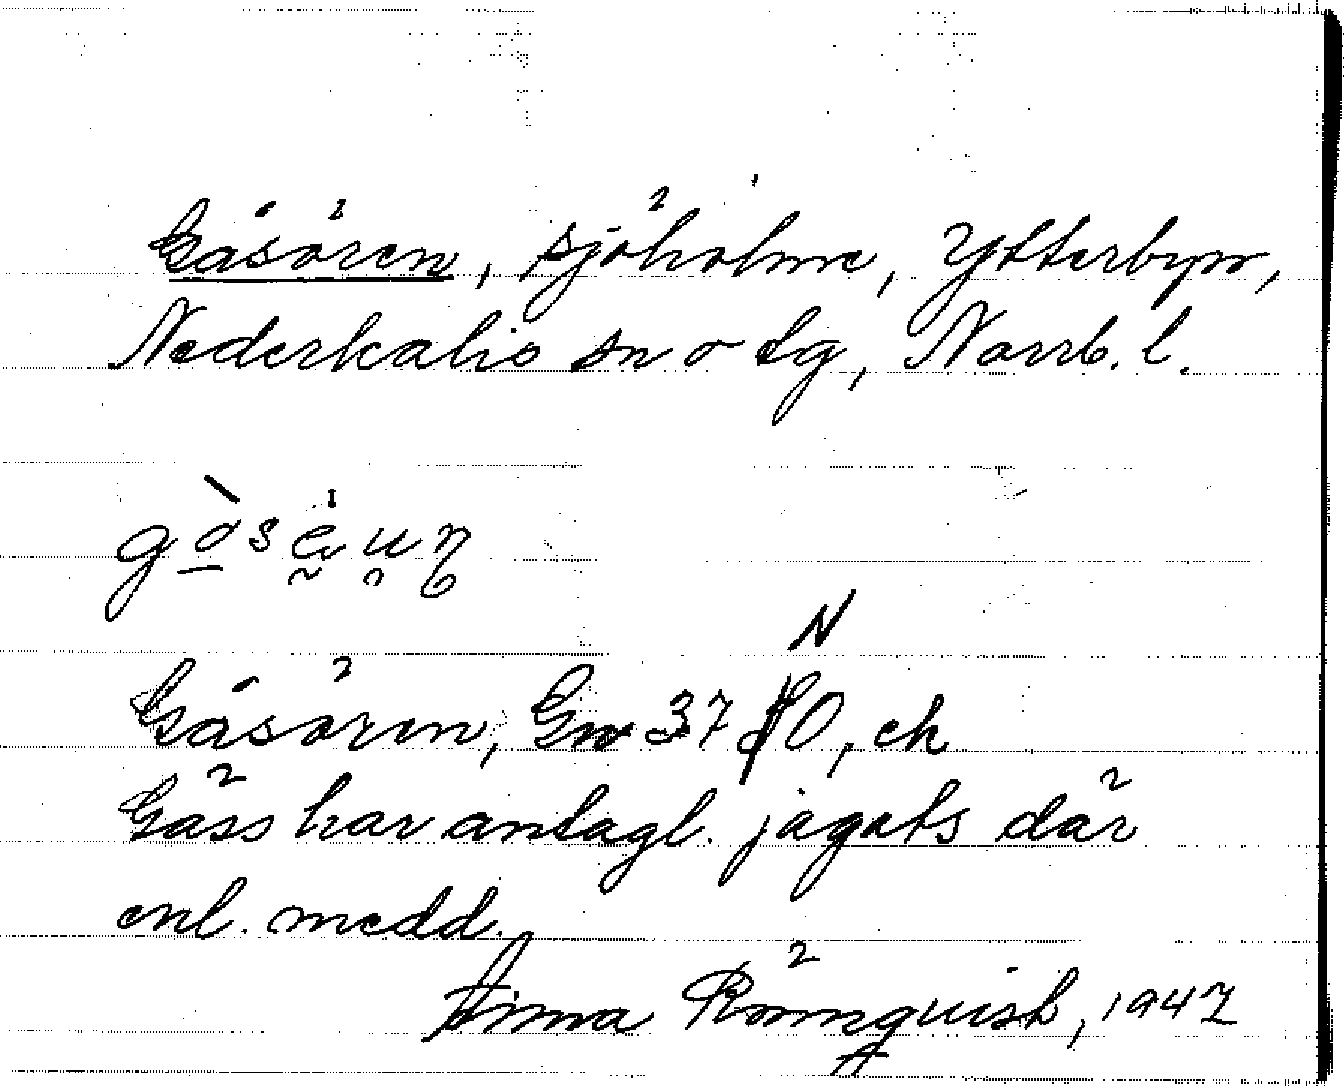 Gåsören, sjöholme, Ytterbyn,
Nederkalix sn o tg, Norrb. l.
N
Gåsören, Gn 37 O, ek
Gäss har antagl. jagats där
enl. medd.
Anna Rönnquist, 1947